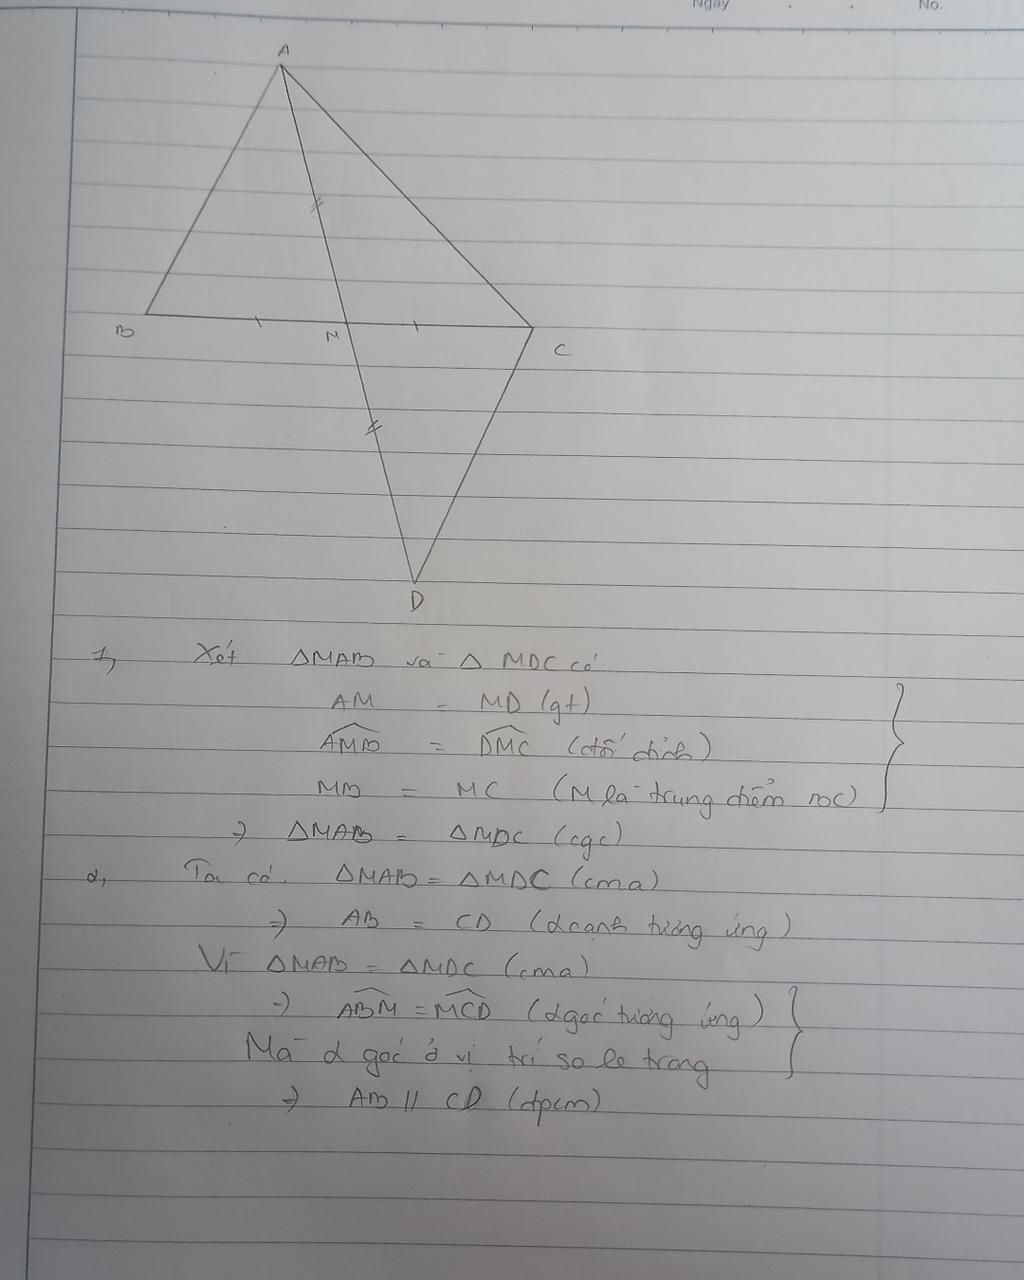 Ngày . . No.
A
B
M
C
D
1, Xét ΔMAB và Δ MDC có
AM = MD (gt)
AMB = DMC (đối đỉnh)
MB = MC (M là trung điểm BC)
=> ΔMAB = ΔMDC (cgc)
2, Ta có: ΔMAB = ΔMDC (cma)
=> AB = CD (2 cạnh tương ứng)
Vì ΔMAB = ΔMDC (cma)
=> ABM = MCD (2 góc tương ứng)
Mà 2 góc ở vị trí so le trong
=> AB // CD (đpcm)